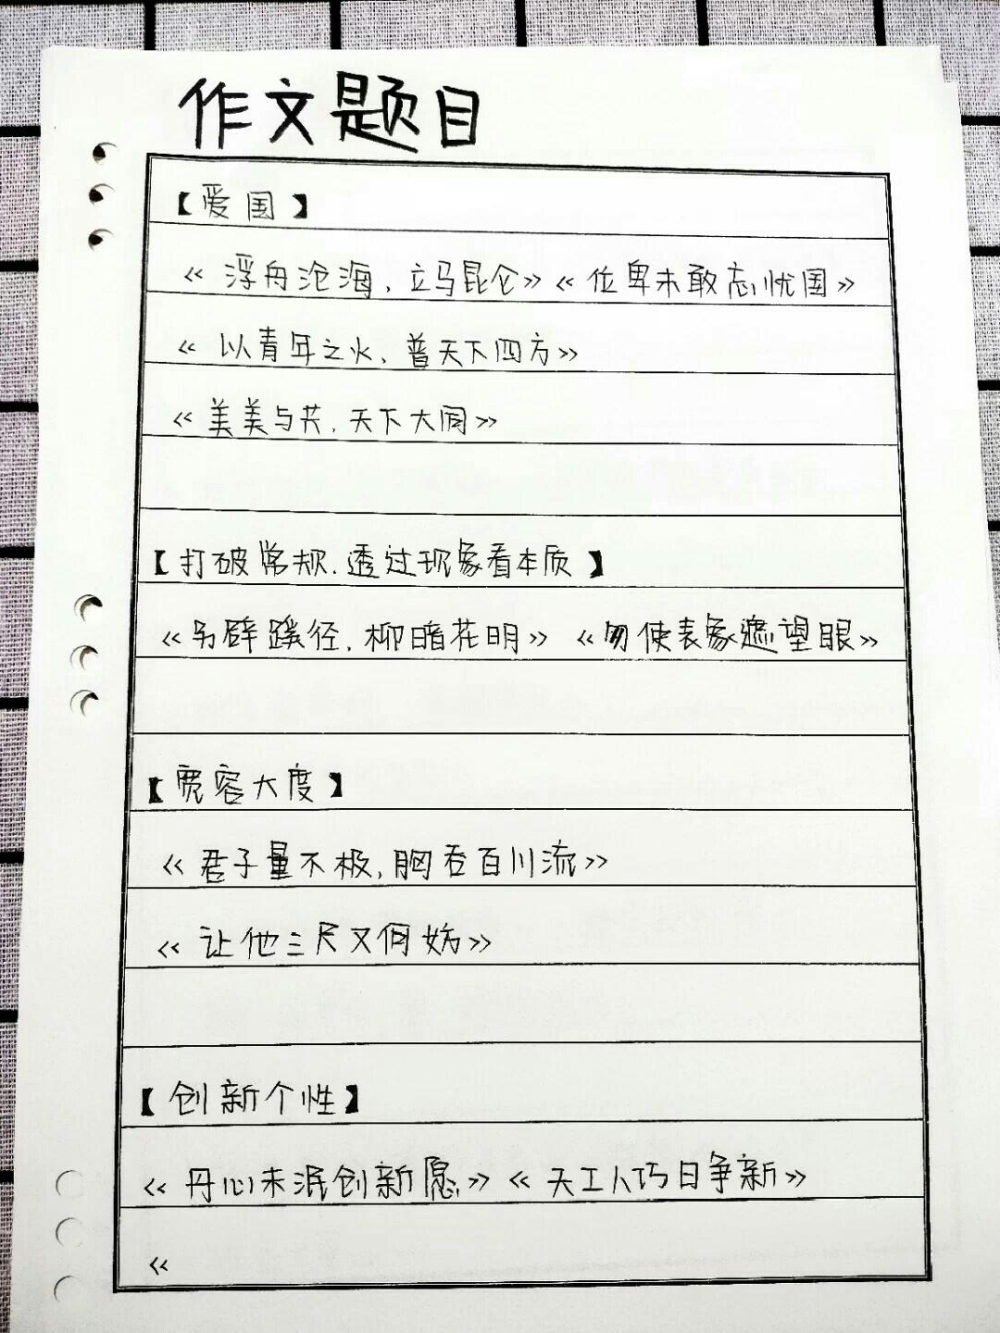 作文题目
【爱国】
《浮舟沧海,立马昆仑》《位卑未敢忘忧国》
《以青年之火,普天下四方》
《美美与共,天下大同》
【打破常规.透过现象看本质】
《另辟蹊径,柳暗花明》《勿使表象遮望眼》
【宽容大度】
《君子量不极,胸吞百川流》
《让他三尺又何妨》
【创新个性】
《丹心未泯创新愿》《天工人巧日争新》
《